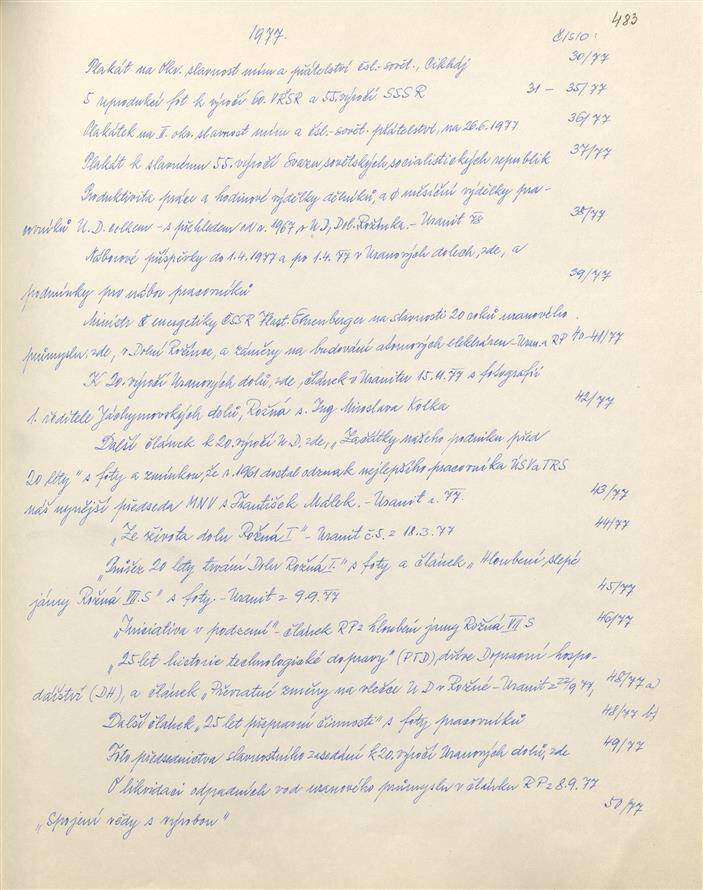 483
1977. Číslo:
Plakát na Okr. slavnost míru a přátelství čsl.-sovět., Cikháj 30/77
5 reprodukcí fot k výročí 60. VŘSR a 55. výročí SSSR 31 – 35/77
Plakátek na II. okr. slavnost míru a čsl.-sovět. přátelství, na 26.6.1977 36/77
Plakát k slavnému 55. výročí Svazu sovětských socialistických republik 37/77
Produktivita práce a hodinové výdělky dělníků, a ϕ měsíční výdělky pra-
covníků U.D. celkem – s přehledem od r. 1967, v U.D, Dol. Rožínka. – Uranit 35/77
Náborové příspěvky do 1.4.1977 a po 1.4.77 v Uranových dolech, zde, a 39/77
podmínky pro nábor pracovníků
Ministr energetiky ČSSR Vlast. Ehrenberger na slavnosti 20 roků uranového
průmyslu, zde, v Dolní Rožínce, a záměry na budování atomových elektráren – Uran. a RP 40-41/77
K 20. výročí Uranových dolů, zde, článek v Uranitu 15.11.77 s fotografií
1. ředitele Jáchymovských dolů, Rožná s. Ing Miroslava Kolka 42/77
Další článek k 20. výročí U.D. zde, „Začátky našeho podniku před
20 léty" s foty a zmínkou, že r. 1961 dostal odznak nejlepšího pracovníka ÚSVaTRS
náš nynější předseda MNV s František Málek. – Uranit 43/77
„Ze života dolu Rožná I" – Uranit č.5. z 18.3.77 44/77
„Průřez 20 lety trvání Dolu Rožná I." s foty a článek „Hloubení slepé
jámy Rožná VII.S" s foty. – Uranit z 9.9.77 45/77
„Iniciativa v podzemí" – článek RP z hloubení jámy Rožná VII S 46/77
„25 let historie technologické dopravy" (PTD), dříve Dopravní hospo-
dářství (DH), a článek „Převratné změny na vlečce U D v Rožné – Uranit z 22/9 77, 48/77 a)
Další článek „25 let přepravní činnosti" s foty pracovníků 48/77 b)
Foto předsednictva slavnostního zasedání k 20. výročí Uranových dolů, zde 49/77
O likvidaci odpadních vod uranového průmyslu v článku RP z 8.9.77
„Spojení vědy s výrobou" 50/77